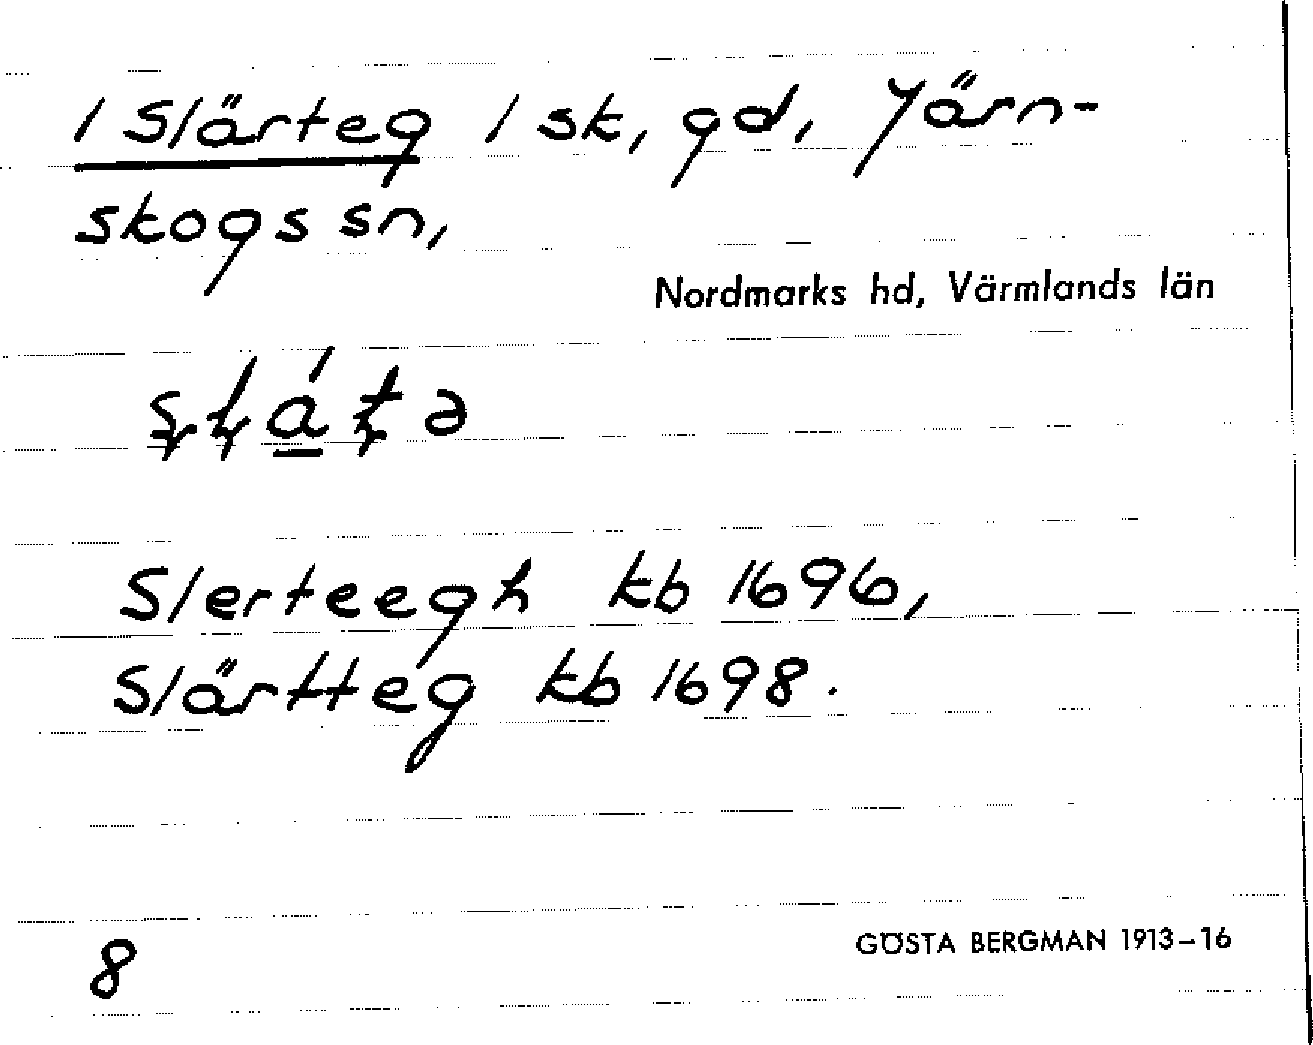 1 Slärteg 1 sk, gd, Järn-
skogs sn,
Nordmarks hd, Värmlands län
Slerteegh kb 1696,
Slärtteg kb 1698.
8
GÖSTA BERGMAN 1913-16